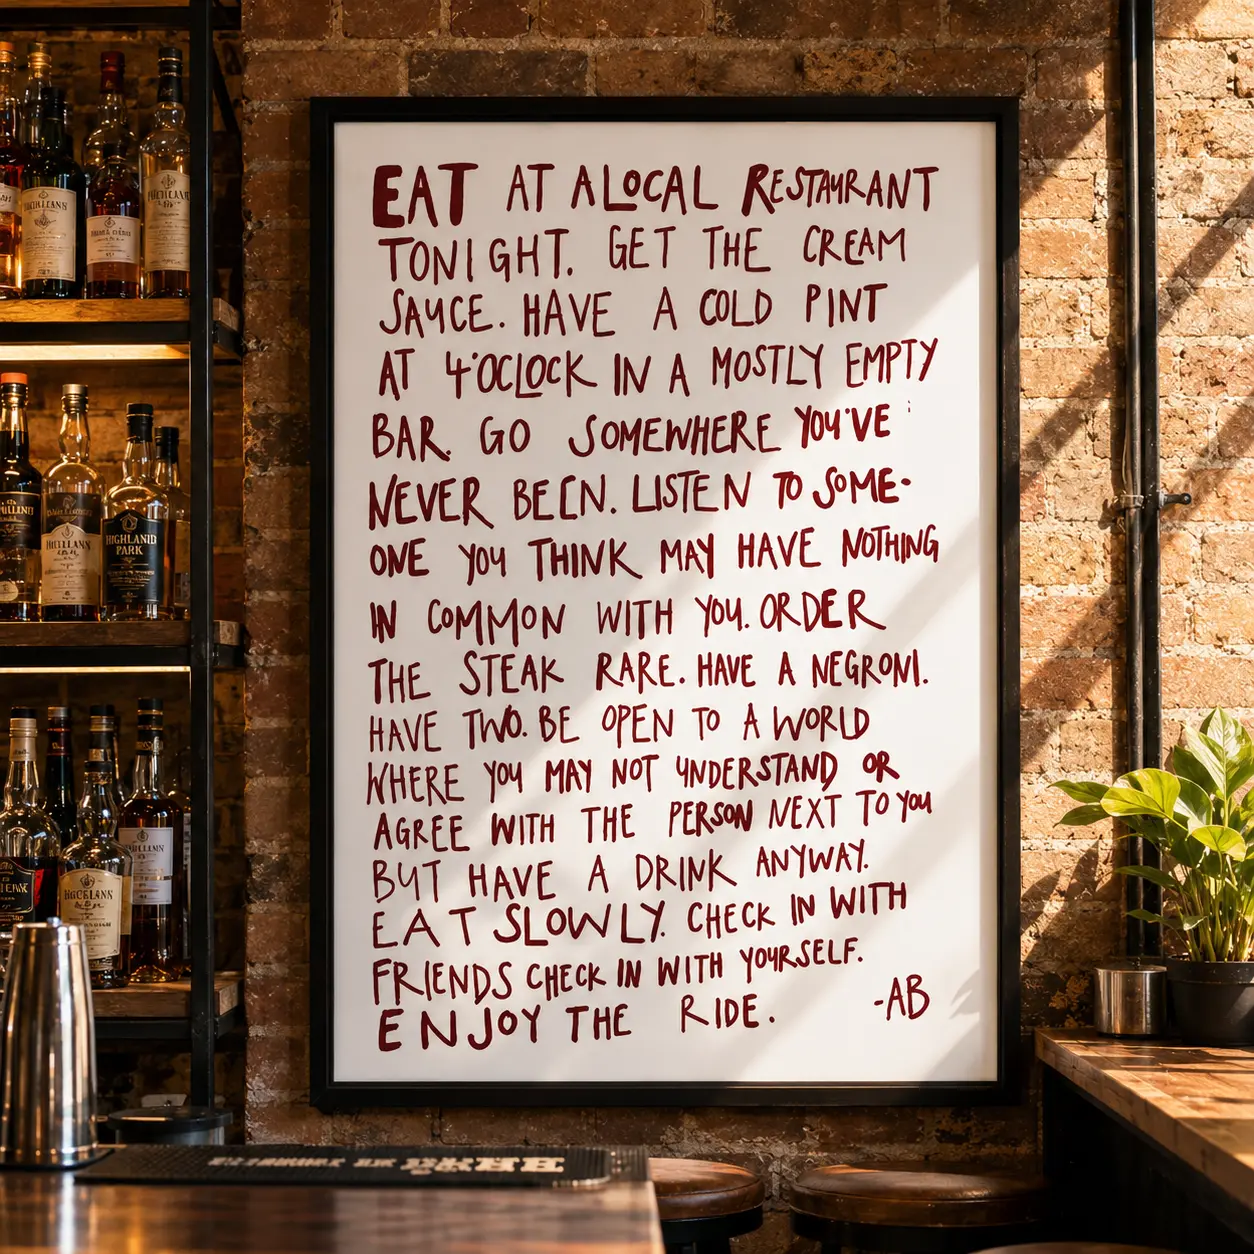 EAT AT A LOCAL RESTAURANT
TONIGHT. GET THE CREAM
SAUCE. HAVE A COLD PINT
AT 4'OCLOCK IN A MOSTLY EMPTY
BAR. GO SOMEWHERE YOU'VE
NEVER BEEN. LISTEN TO SOME-
ONE YOU THINK MAY HAVE NOTHING
IN COMMON WITH YOU. ORDER
THE STEAK RARE. HAVE A NEGRONI.
HAVE TWO. BE OPEN TO A WORLD
WHERE YOU MAY NOT UNDERSTAND OR
AGREE WITH THE PERSON NEXT TO YOU
BUT HAVE A DRINK ANYWAY.
EAT SLOWLY. CHECK IN WITH
FRIENDS CHECK IN WITH YOURSELF.
ENJOY THE RIDE. -AB
HIGHLAND
PARK